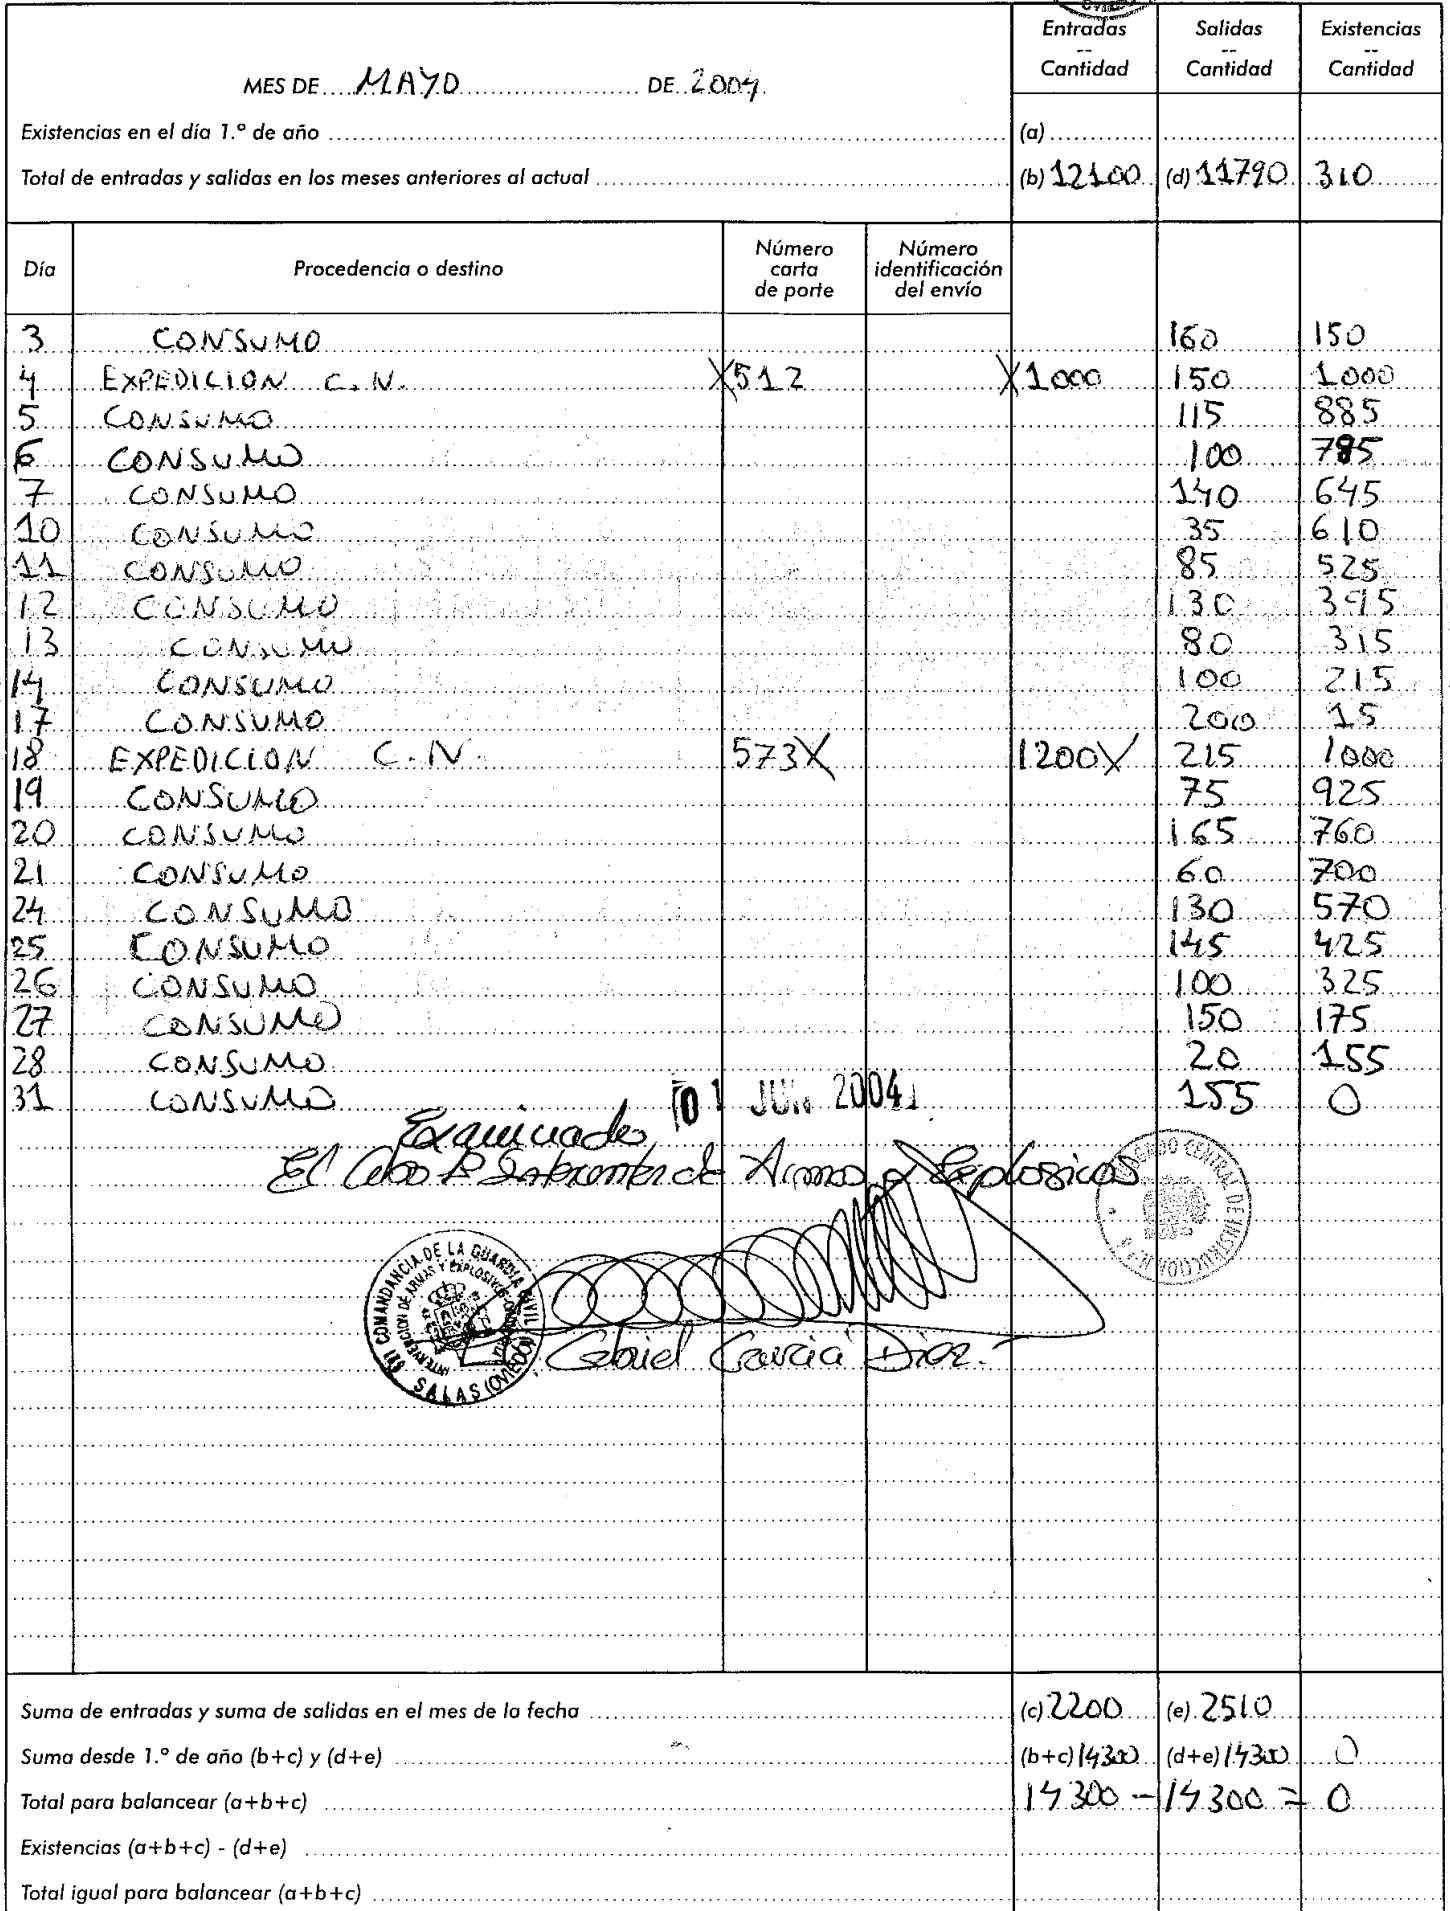 Entradas -- Cantidad Salidas -- Cantidad Existencias -- Cantidad
MES DE MAYO DE 2004
Existencias en el día 1.º de año (a)
Total de entradas y salidas en los meses anteriores al actual (b) 12100 (d) 11790 310
Día Procedencia o destino Número carta de porte Número identificación del envío
3 CONSUMO 160 150
4 EXPEDICION C.N. X512 X1000 150 1000
5 CONSUMO 115 885
6 CONSUMO 100 785
7 CONSUMO 140 645
10 CONSUMO 35 610
11 CONSUMO 85 525
12 CONSUMO 130 395
13 CONSUMO 80 315
14 CONSUMO 100 215
17 CONSUMO 200 15
18 EXPEDICION C.N. 573X 1200X 215 1000
19 CONSUMO 75 925
20 CONSUMO 165 760
21 CONSUMO 60 700
24 CONSUMO 130 570
25 CONSUMO 145 425
26 CONSUMO 100 325
27 CONSUMO 150 175
28 CONSUMO 20 155
31 CONSUMO 155 0
Examinado 01 JUN 2004
El Cabo 1º Interventor de Armas y Explosivos
JUZGADO CENTRAL DE INSTRUCCION N.º
COMANDANCIA DE LA GUARDIA CIVIL
INTERVENCION DE ARMAS Y EXPLOSIVOS
SALAS (OVIEDO)
Gabriel García Díaz.-
Suma de entradas y suma de salidas en el mes de la fecha (c) 2200 (e) 2510
Suma desde 1.º de año (b+c) y (d+e) (b+c) 14300 (d+e) 14300 0
Total para balancear (a+b+c) 14300 - 14300 = 0
Existencias (a+b+c) - (d+e)
Total igual para balancear (a+b+c)